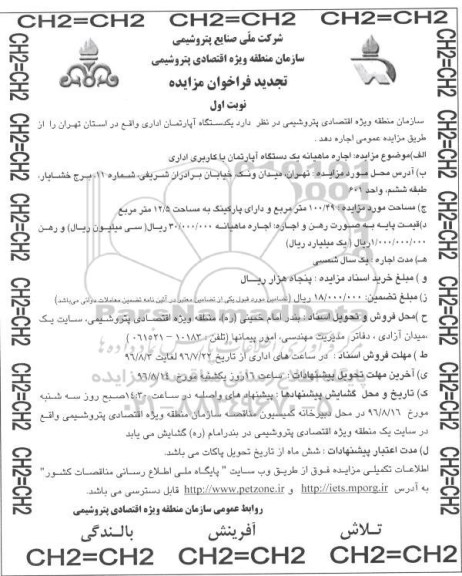 CH2=CH2 CH2=CH2 CH2=CH2
شرکت ملّی صنایع پتروشیمی
سازمان منطقه ویژه اقتصادی پتروشیمی
تجدید فراخوان مزایده
نوبت اول
سازمان منطقه ویژه اقتصادی پتروشیمی در نظر دارد یکدستگاه آپارتمان اداری واقع در استان تهران را از
طریق مزایده عمومی اجاره دهد .
الف)موضوع مزایده: اجاره ماهیانه یک دستگاه آپارتمان با کاربری اداری
ب) آدرس محل مورد مزایده : تهران، میدان ونک، خیابان برادران شریفی، شماره ۱۱، برج خشایار،
طبقه ششم، واحد ۶۰۱
ج) مساحت مورد مزایده : ۱۰۰/۴۹ متر مربع و دارای پارکینگ به مساحت ۱۲/۵ متر مربع
د)قیمت پایه به صورت رهن و اجاره: اجاره ماهیانه ۳۰/۰۰۰/۰۰۰ ریال( سی میلیون ریال) و رهن
۱/۰۰۰/۰۰۰/۰۰۰ریال ( یک میلیارد ریال)
هـ) مدت اجاره : یک سال شمسی
و ) مبلغ خرید اسناد مزایده : پنجاه هزار ریال
ز) مبلغ تضمین: ۱۸/۰۰۰/۰۰۰ ریال (تضامین مورد قبول یکی از تضامین معتبر در آئین نامه تضمین معاملات دولتی می‌باشد)
ح )محل فروش و تحویل اسناد : بندر امام خمینی (ره)، منطقه ویژه اقتصادی پتروشیمی، سایت یک
،میدان آزادی ، دفاتر مدیریت مهندسی، امور پیمانها (تلفن : ۱۰۱۸۳ – ۰۶۱۵۲۱ )
ط ) مهلت فروش اسناد : در ساعت های اداری از تاریخ ۹۶/۷/۲۲ لغایت ۹۶/۸/۲
ی) آخرین مهلت تحویل پیشنهادات : ساعت ۱۶روز یکشنبه مورخ ۹۶/۸/۱۴
ک) تاریخ و محل گشایش پیشنهادها : پیشنهادهای واصله در ساعت ۱۴:۳۰صبح روز سه شنبه
مورخ ۹۶/۸/۱۶ در محل دبیرخانه کمیسیون مناقصه سازمان منطقه ویژه اقتصادی پتروشیمی واقع
در سایت یک منطقه ویژه اقتصادی پتروشیمی در بندرامام (ره) گشایش می یابد
ل) مدت اعتبار پیشنهادات : شش ماه از تاریخ تحویل پاکات می باشد.
اطلاعات تکمیلی مزایده فوق از طریق وب سایت " پایگاه ملی اطلاع رسانی مناقصات کشور"
به آدرس http://iets.mporg.ir و http://www.petzone.ir قابل دسترسی می باشد.
روابط عمومی سازمان منطقه ویژه اقتصادی پتروشیمی
تلاش آفرینش بالندگی
CH2=CH2 CH2=CH2 CH2=CH2